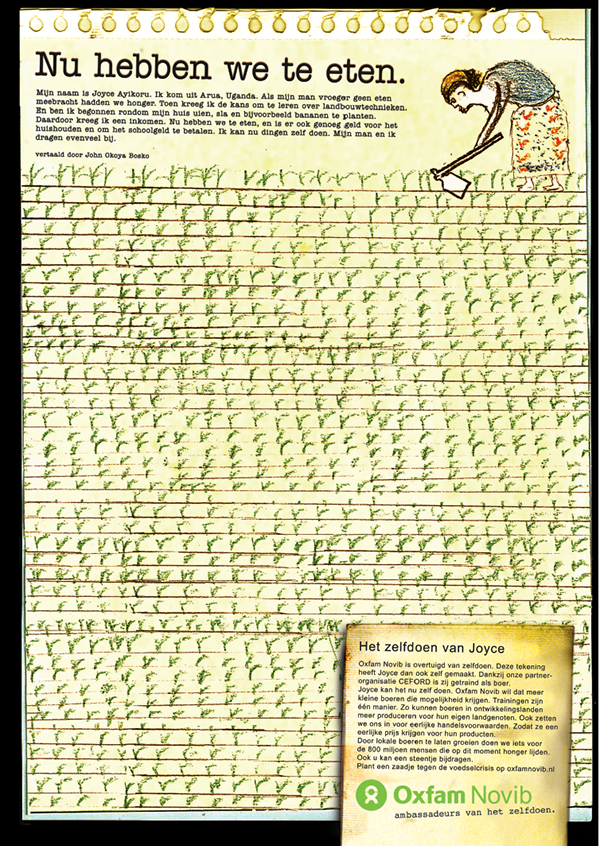 Nu hebben we te eten.
Mijn naam is Joyce Ayikoru. Ik kom uit Arua, Uganda. Als mijn man vroeger geen eten
meebracht hadden we honger. Toen kreeg ik de kans om te leren over landbouwtechnieken.
En ben ik begonnen rondom mijn huis uien, sla en bijvoorbeeld bananen te planten.
Daardoor kreeg ik een inkomen. Nu hebben we te eten, en is er ook genoeg geld voor het
huishouden en om het schoolgeld te betalen. Ik kan nu dingen zelf doen. Mijn man en ik
dragen evenveel bij.
vertaald door John Okoya Bosko
Het zelfdoen van Joyce
Oxfam Novib is overtuigd van zelfdoen. Deze tekening
heeft Joyce dan ook zelf gemaakt. Dankzij onze partner-
organisatie CEFORD is zij getraind als boer.
Joyce kan het nu zelf doen. Oxfam Novib wil dat meer
kleine boeren die mogelijkheid krijgen. Trainingen zijn
één manier. Zo kunnen boeren in ontwikkelingslanden
meer produceren voor hun eigen landgenoten. Ook zetten
we ons in voor eerlijke handelsvoorwaarden. Zodat ze een
eerlijke prijs krijgen voor hun producten.
Door lokale boeren te laten groeien doen we iets voor
de 800 miljoen mensen die op dit moment honger lijden.
Ook u kan een steentje bijdragen.
Plant een zaadje tegen de voedselcrisis op oxfamnovib.nl
Oxfam Novib
ambassadeurs van het zelfdoen.